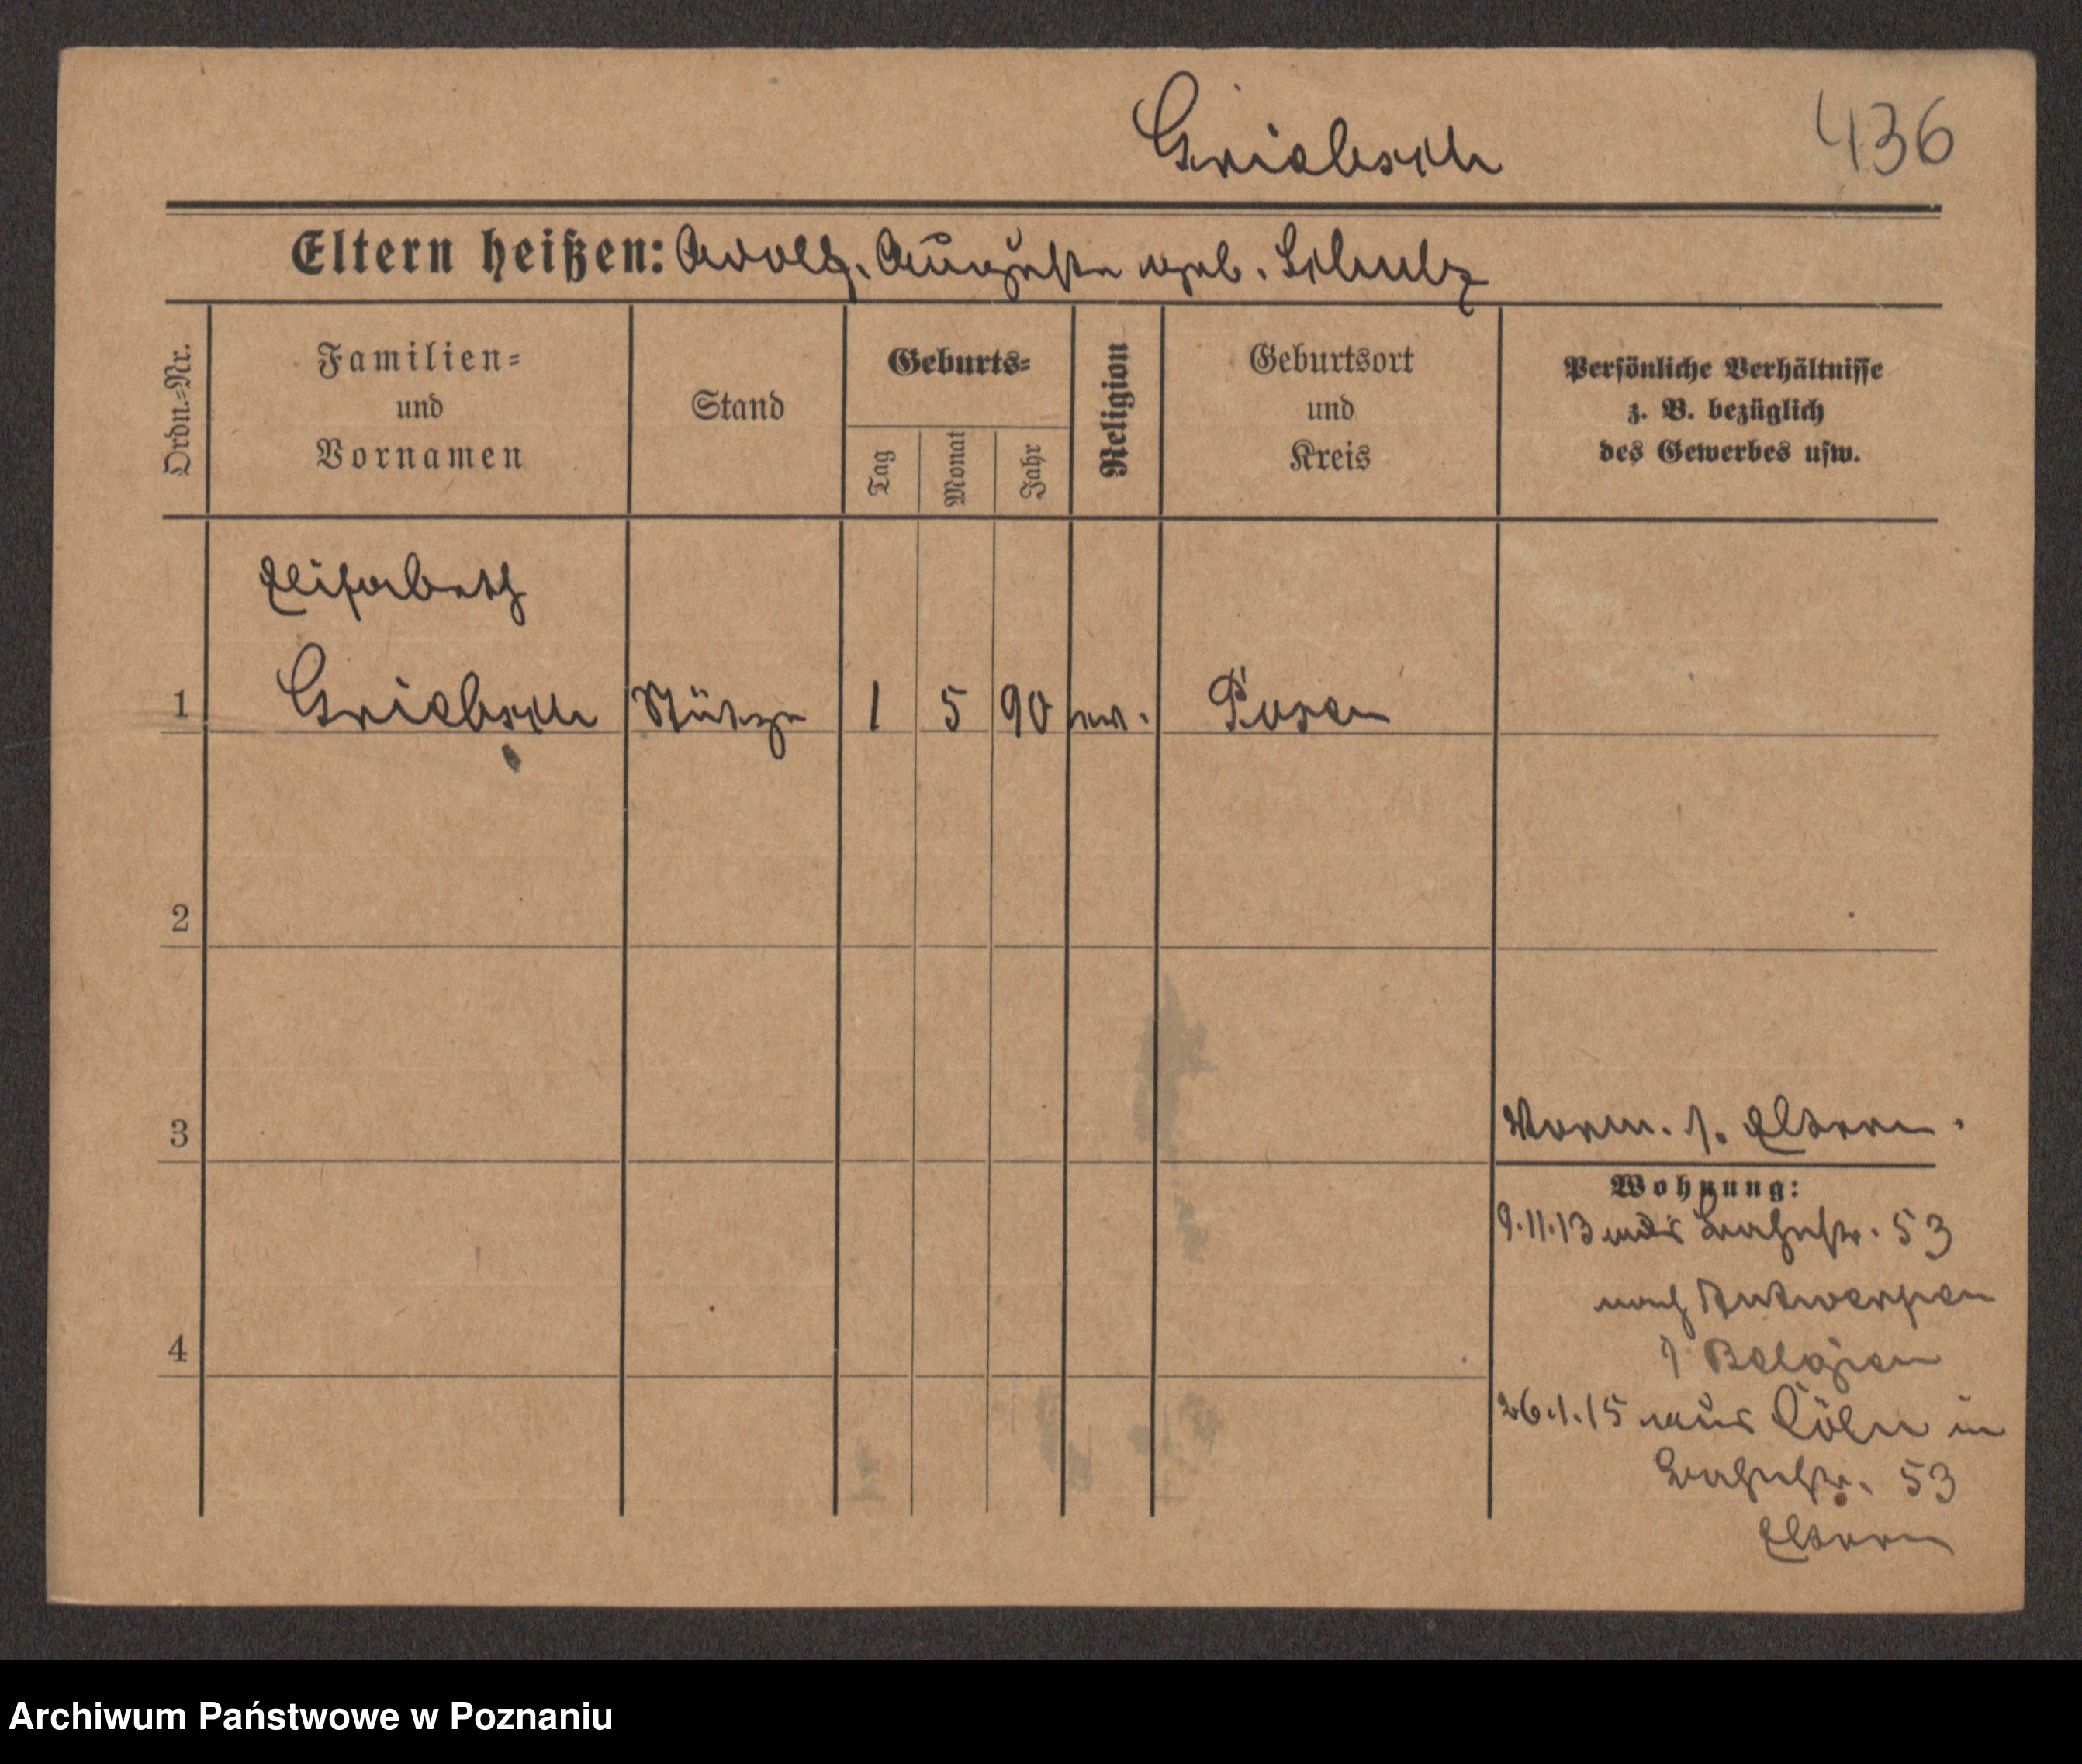 Griebsch 436
Eltern heißen: Adolf, Auguste geb. Schulz
Ordn.=Nr.
Familien=
und
Vornamen
Stand
Geburts=
Tag
Monat
Jahr
Religion
Geburtsort
und
Kreis
Persönliche Verhältnisse
z. B. bezüglich
des Gewerbes usw.
Elisabeth
1 Griebsch Stütze 1 5 90 ev. Posen
2
3
Vorm. s. Eltern.
Wohnung:
9.11.13 aus Bahnstr. 53
nach Antwerpen
Belgien
4
26.1.15 aus Cöln in
Bahnstr. 53
Eltern
Archiwum Państwowe w Poznaniu